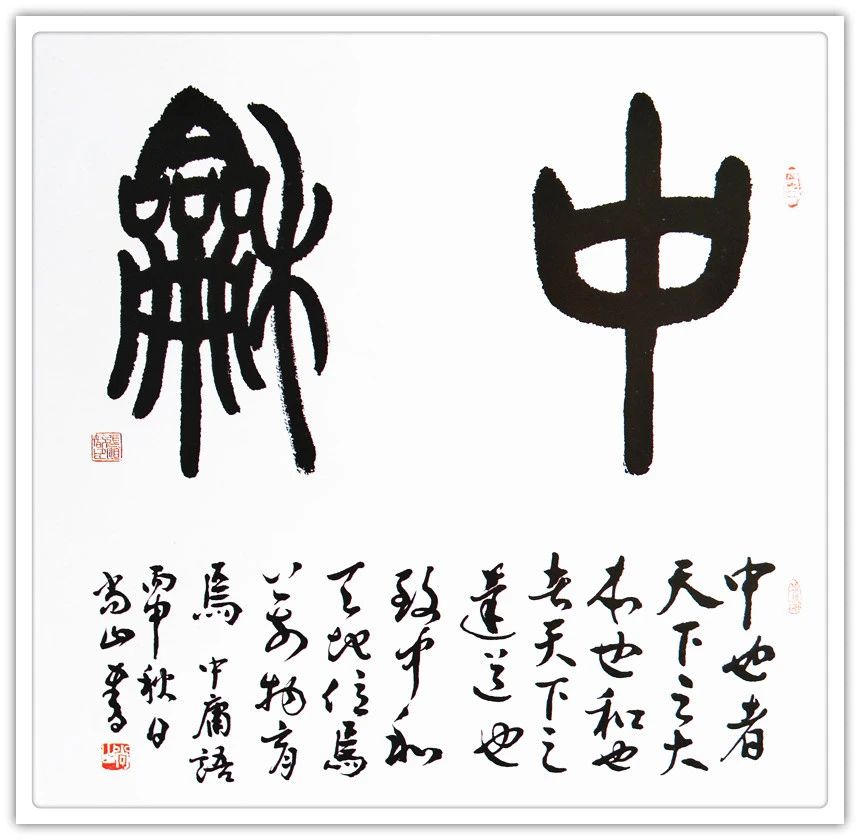 中龢
中也者
天下之大
本也和也
者天下之
達道也
致中和
天地位焉
萬物育
焉 中庸語
丙申秋日
尚山書